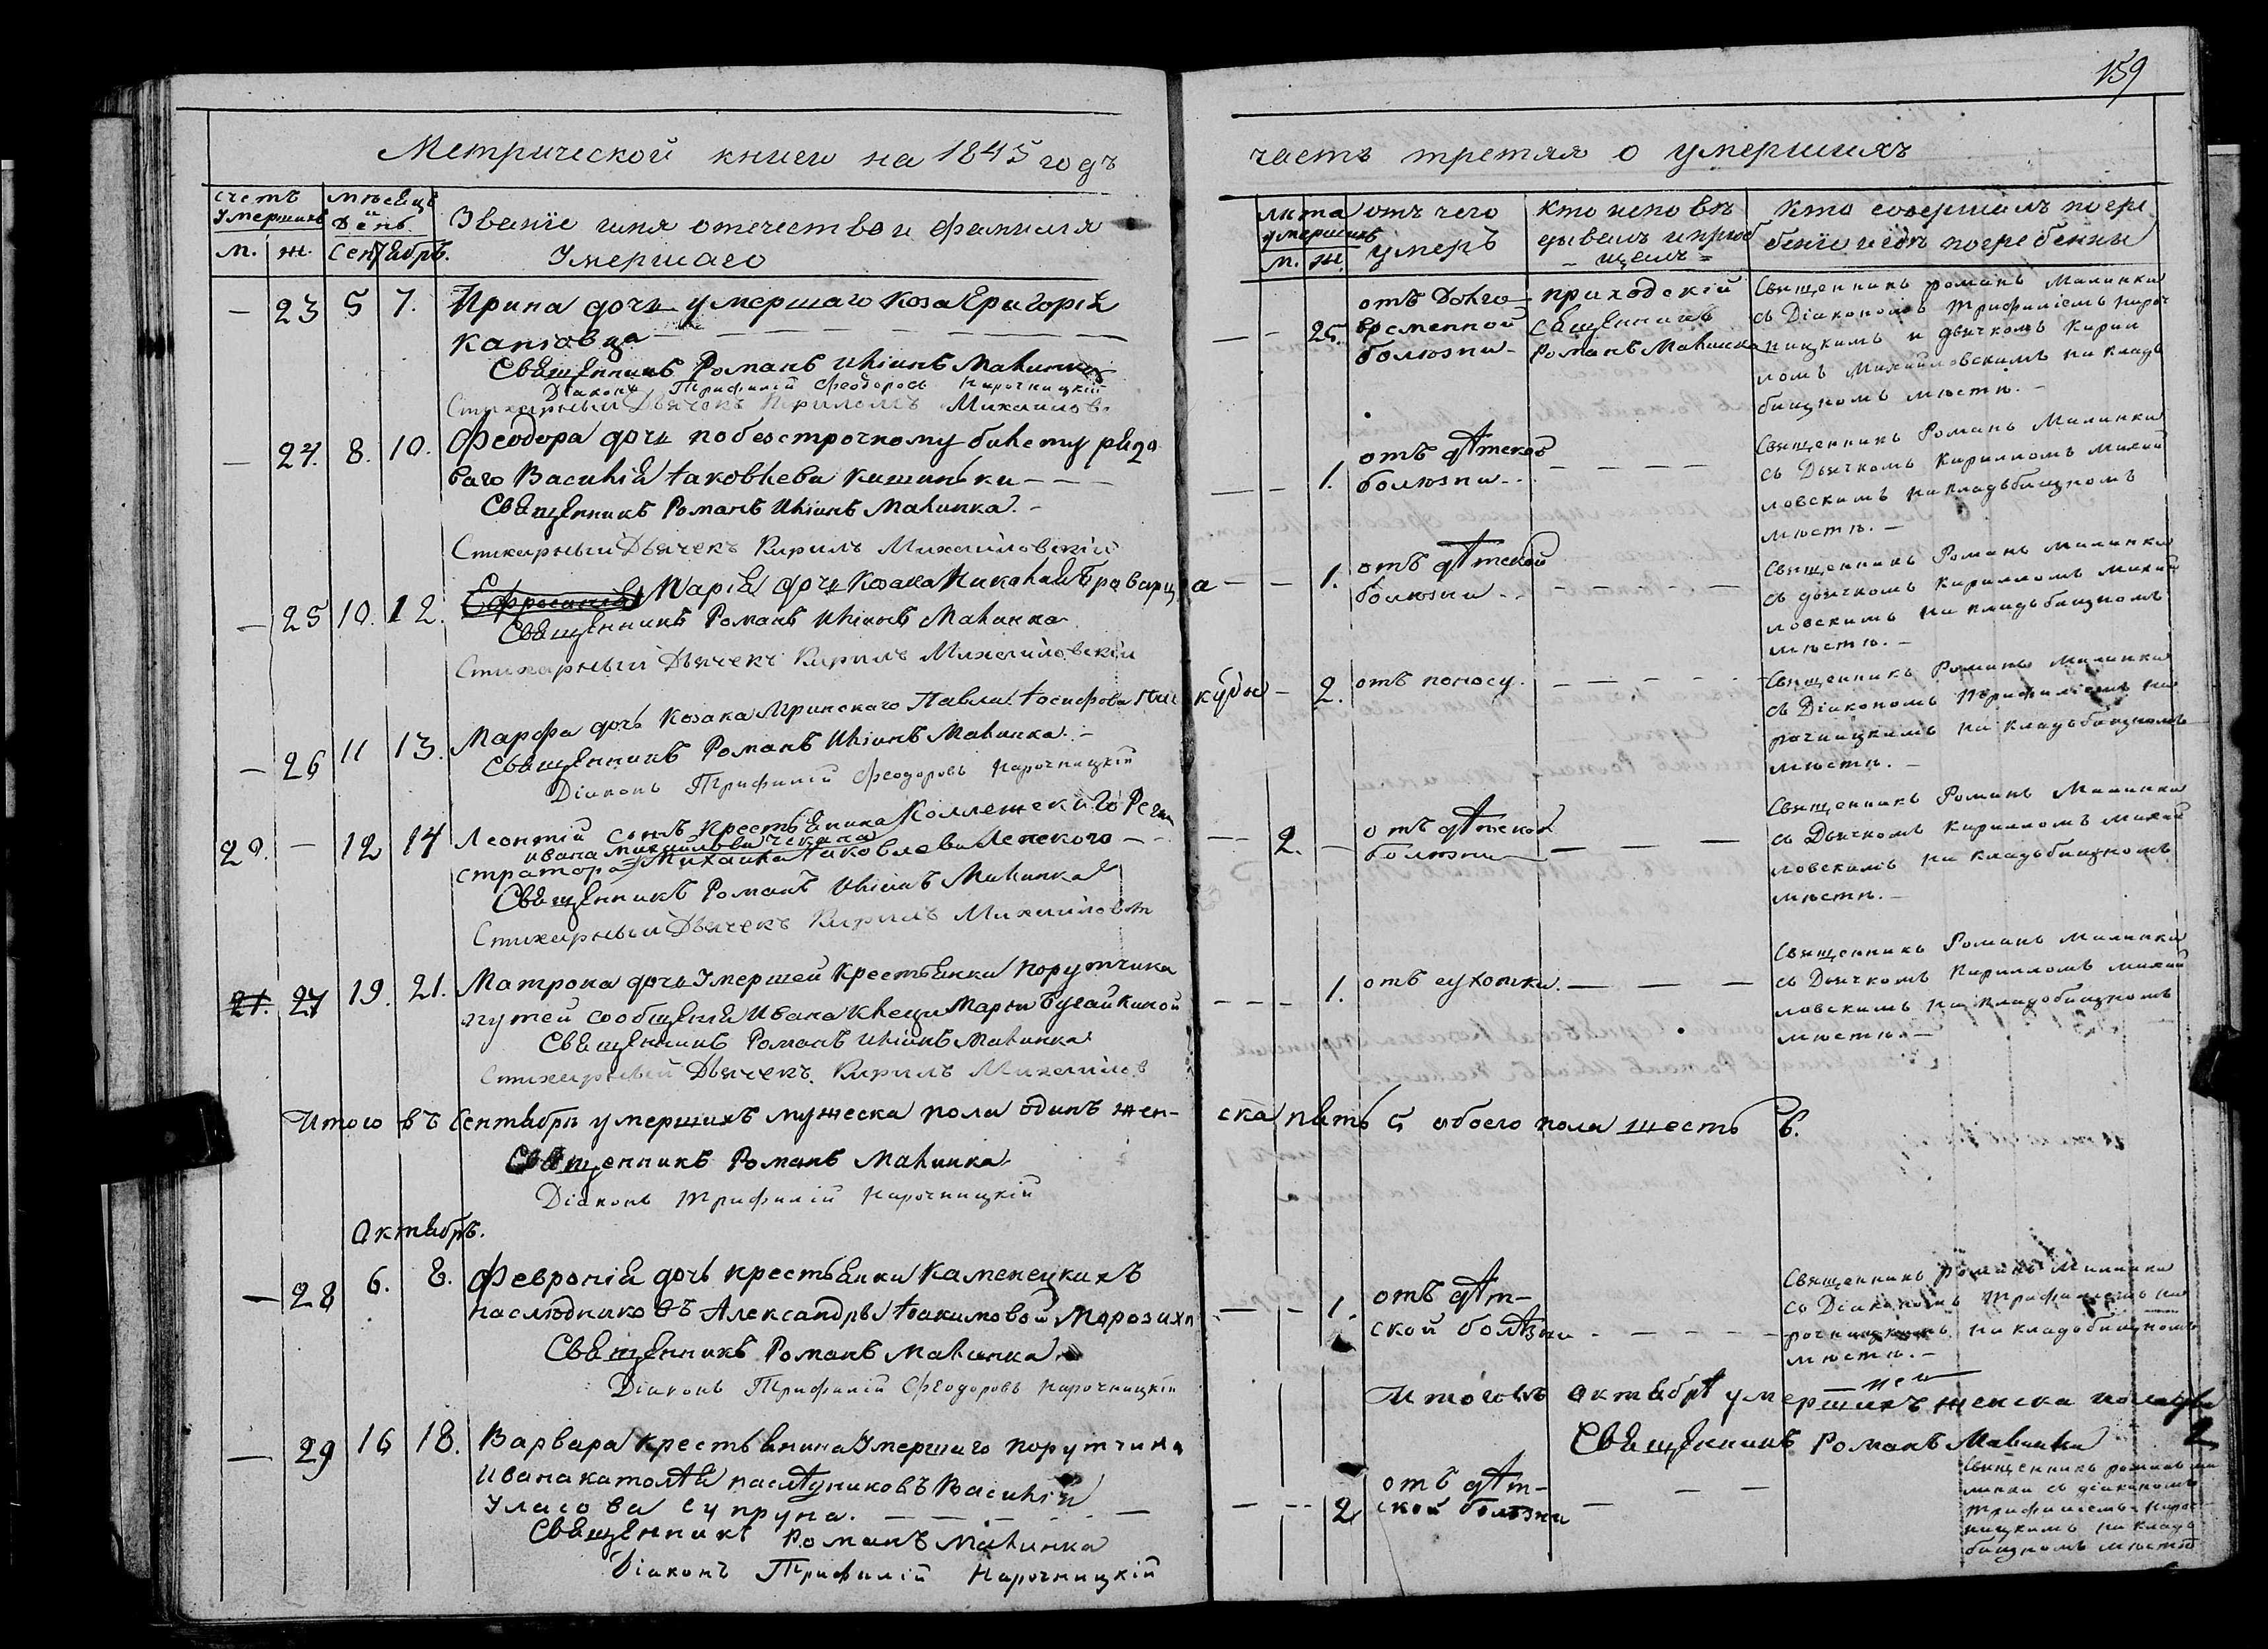 159
Метрической книги на 1845 годъ
часть третяя о умершихъ
счетъ умершихъ
м. ж.
мѣсяцъ и день
Сентябрь.
Званіе имя отечество и фамилія
Умершаго
лѣта умершихъ
м. ж.
отъ чего
умеръ
Кто исповѣ
дывалъ и приоб
щалъ
Кто совершалъ погре
беніе и гдѣ погребенны
— 23 5 7. Ирина дочь умершаго Коза Григорія
Каповца
Священникъ Романъ Иліинъ Малинка
Діаконъ Трифилій Феодоровъ Нарочницкій
Стихарный Дьячекъ Кирилъ Михаиловъ
— — 25. отъ долго
временной
болюзни
приходскій
Священникъ
Романъ Малинка
Священникъ Романъ Малинка
съ Діакономъ Трифиліемъ Нароч
ницкимъ и дьячкомъ Кирил
ломъ Михайловскимъ на кладь
бищномъ мюсти. —
— 24. 8. 10. Феодора дочь побезстрочному билету рядо
ваго Василія Іаковлева Кишиньки — — —
Священникъ Романъ Иліинъ Малинка. —
Стихарный Дьячекъ Кирилъ Михайловскій
— — 1. отъ дѣтской
болюзни — — — —
Священникъ Романъ Малинка
съ Дьячкомъ Кириломъ Михай
ловскимъ на кладьбищномъ
мюсти. —
— 25 10. 12. Ефросинія Марія дочь Козака Николая Броварца
Священникъ Романъ Иліинъ Малинка
Стихарный Дьячекъ Кирилъ Михайловскій
— — 1. отъ дѣтской
болюзни — — — —
Священникъ Романъ Малинка
съ дьячкомъ Кириломъ Михай
ловскимъ на кладьбищномъ
мюсти. —
— 26 11 13. Марфа дочь Козака Мринскаго Павла Іосифова
Священникъ Романъ Иліинъ Малинка. —
Діаконъ Трифилій Феодоровъ Нарочницкій
— 2. отъ поносу. — — — —
Священникъ Романъ Малинка
съ Діакономъ Трифиліемъ На
рочницкимъ на кладьбищномъ
мюсти. —
— 12 14 Леонтій сынъ Крестьянина Коллежскаго Реги
ивана михайлова
стратора Михаила Іаковлева Ленского — —
Священникъ Романъ Иліинъ Малинка
Стихарный Дьячекъ Кирилъ Михайловъ
— 2. — отъ дѣтской
болюзни — — —
Священникъ Романъ Малинка
съ Дьячкомъ Кириломъ Михай
ловскимъ на кладьбищномъ
мюсти. —
21. 27 19. 21. Матрона дочь Умершей Крестьянки Порутчика
путей сообщенія Ивана Клеци Марьи Бугайкиной
Священникъ Романъ Иліинъ Малинка
Стихарный Дьячекъ Кирилъ Михайловъ
— — — 1. отъ сухотки. — — —
Священникъ Романъ Малинка
съ Дьячкомъ Кириломъ Михай
ловскимъ на кладобищномъ
мюсти. —
Итого въ Сентябрѣ умершихъ мужеска пола одинъ жен-
ска пять 5 обоего пола шесть 6.
Священникъ Романъ Малинка
Діаконъ Трифилій Нарочницкій
Октябрь.
— 28 6. 8. Февронія дочь крестьянки Каменецкихъ
наслюдниковъ Александры Іоакимовой Морозихи
Священникъ Романъ Малинка
Діаконъ Трифилій Феодоровъ Нарочницкій
— — 1. отъ дѣт-
ской болѣзни — — — — —
Священникъ Романъ Малинка
съ Діакономъ Трифиліемъ На
рочницкимъ на кладобищномъ
мюсти. —
— 29 16 18. Варвара Крестьянина Умершаго Порутчика
Ивана католѣя наслѣдниковъ Василія
Уласова Супруна. — — —
Священникъ Романъ Малинка
Діаконъ Трифилій Нарочницкій
Итого въ октябрѣ умершихъ женска пола
Священникъ Романъ Малинка 2
— — 2 отъ дѣт-
ской болѣзни — — —
Священникъ Романъ Ма
линка съ діакономъ
Трифиліемъ Нароч
ницкимъ на кладь
бищномъ мюсти